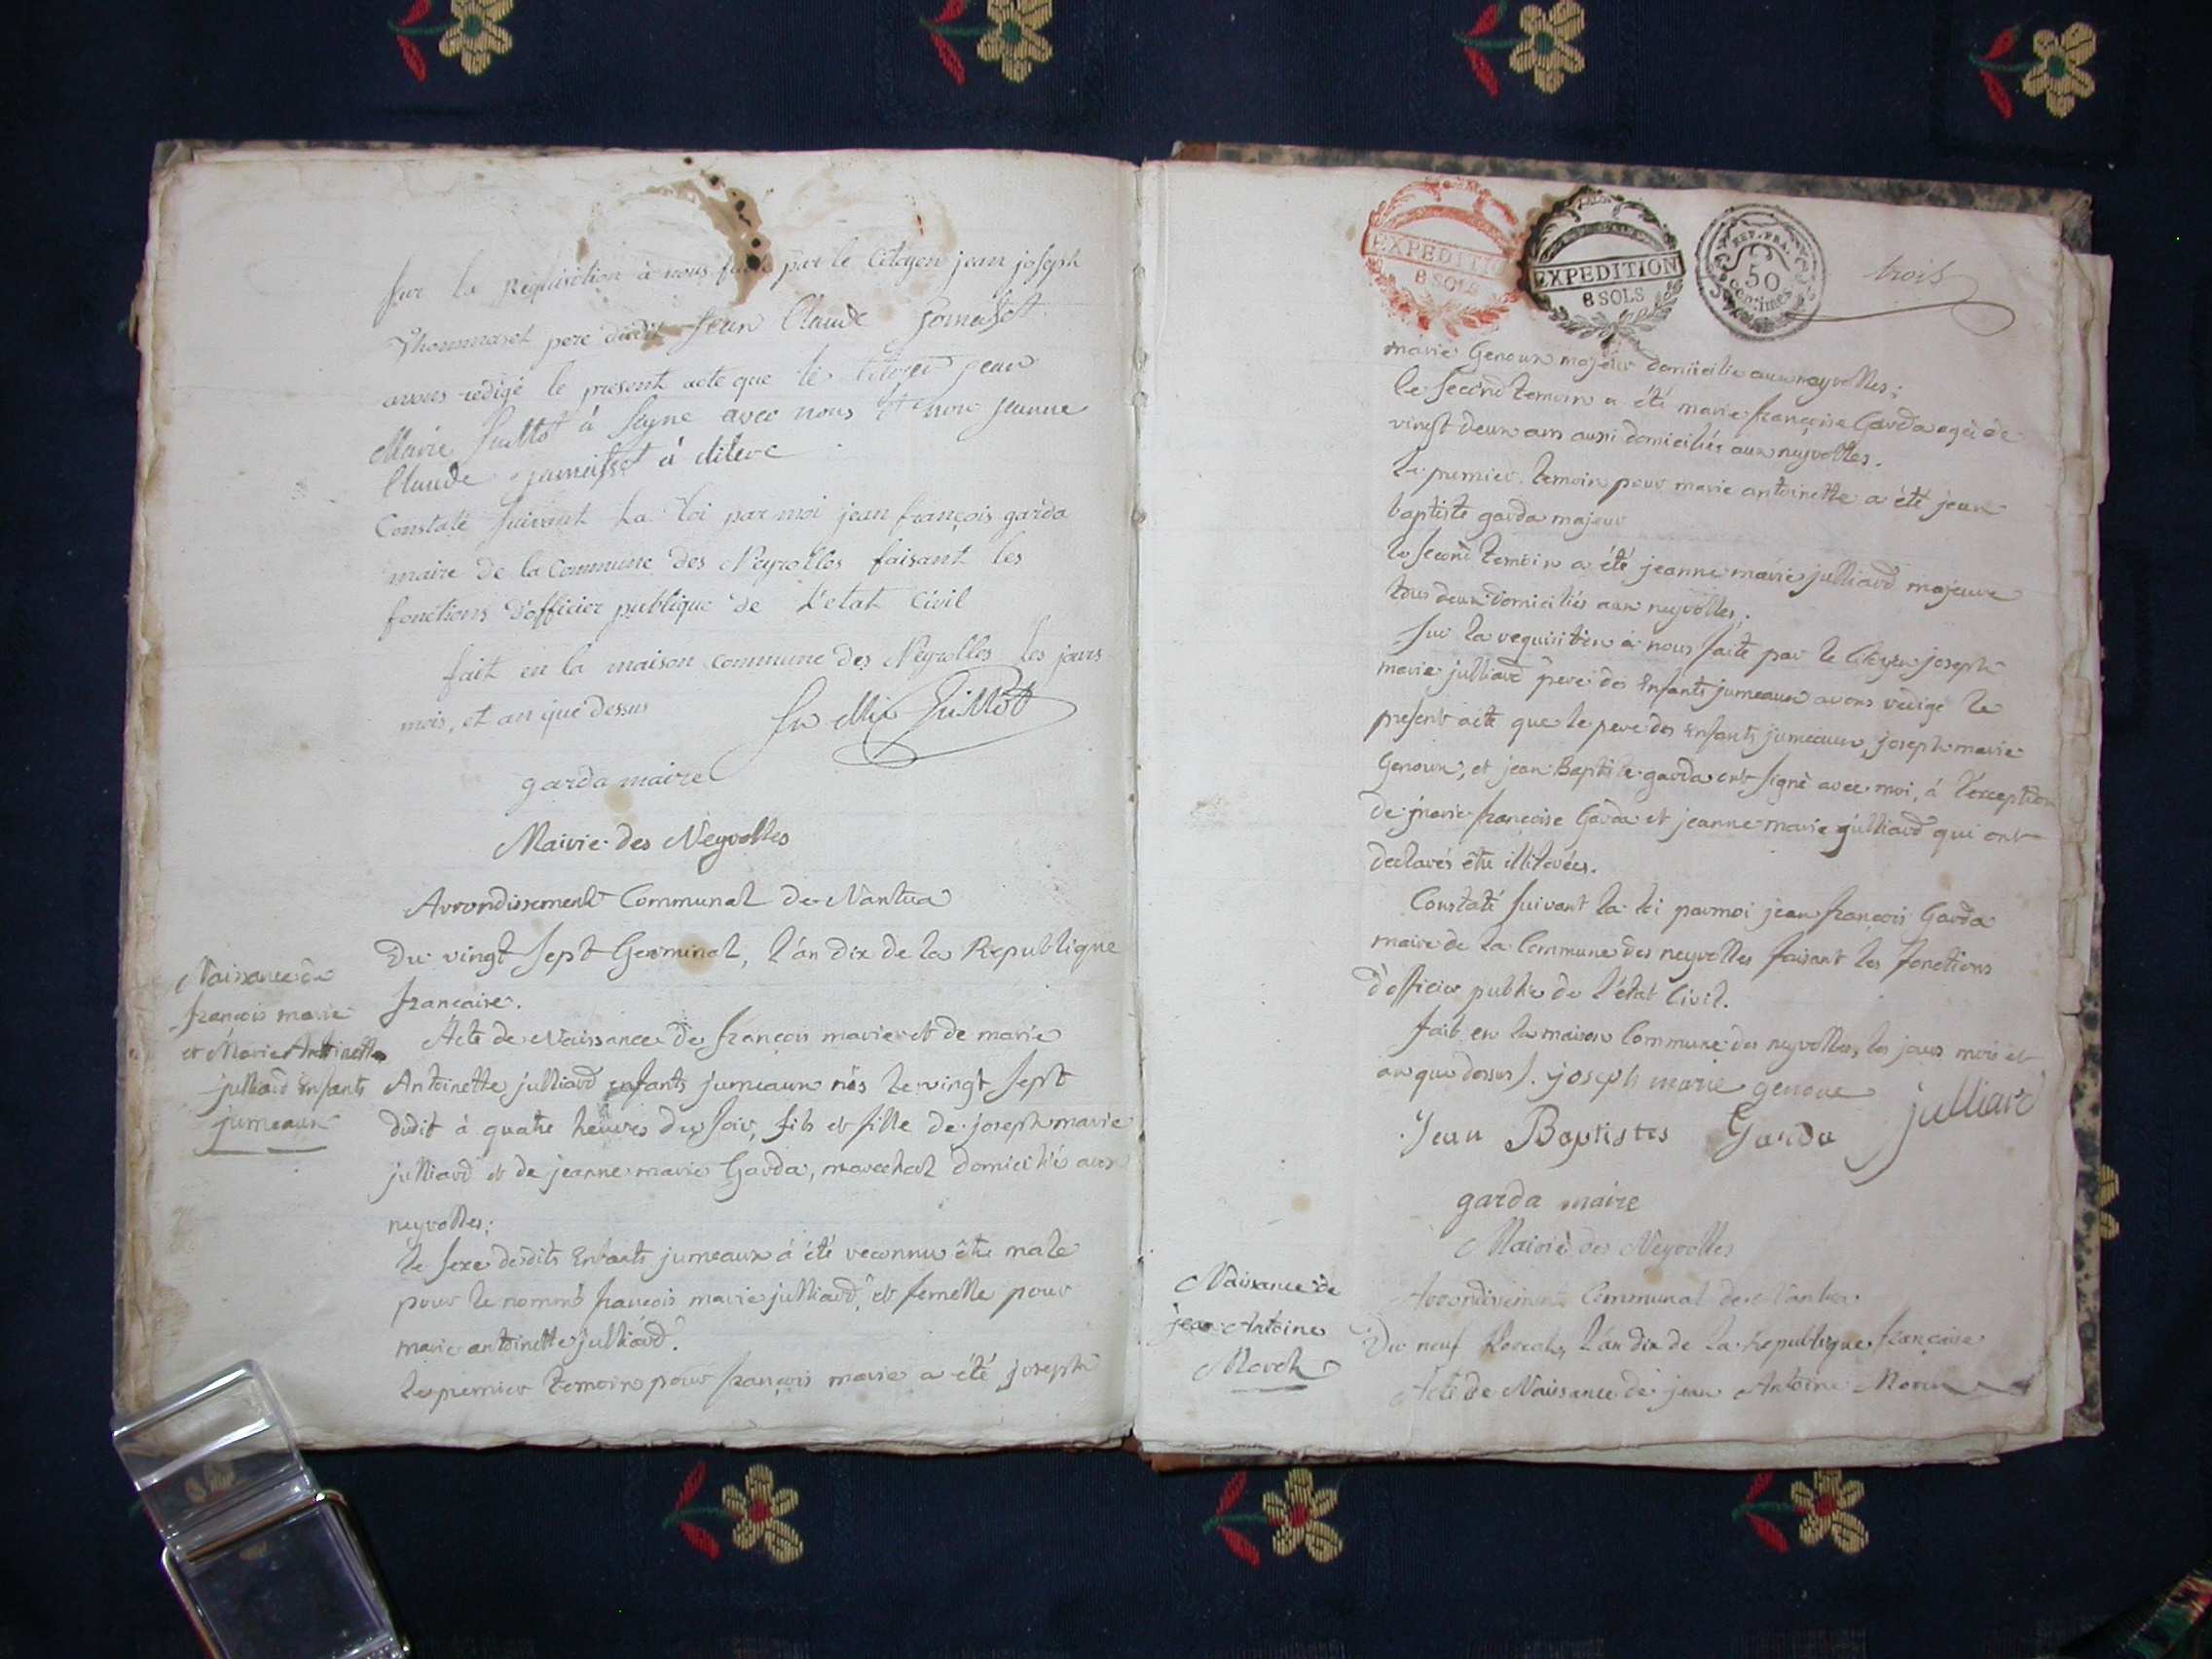 Sur la Requisition à nous faite par le Citoyen jean joseph
Thommaset pere dudit Jean Claude
avons redigé le present acte que le Citoyen jean
Marie Juillot à Signe avec nous et non jeanne
Claude à
Constaté Suivant La Loi par moi jean françois garda
maire de la Commune des Neyrolles faisant les
fonctions d'officier publique de L'etat Civil
fait en la maison commune des Neyrolles les jours
mois, et an que dessus
Juillot
garda maire
Mairie des Neyrolles
Arrondissement Communal de Nantua
Du vingt sept Germinal, l'an dix de la Republique
francaise.
Naissance de
françois marie
et Marie Antoinette
julliard Enfants
jumeaux
Acte de Naissance de francois marie et de marie
Antoinette julliard enfants jumeaux nés le vingt sept
dudit à quatre heures du soir, fils et fille de joseph marie
julliard et de jeanne marie Garda, marechal domicilié aux
neyrolles;
le sexe desdits Enfants jumeaux à été reconnu être male
pour le nommé francois marie julliard, et femelle pour
marie antoinette julliard.
le premier temoin pour françois marie a été joseph
EXPEDITION
8 SOLS
EXPEDITION
8 SOLS
REP. FRA.
50
centimes
trois
marie Genoux majeur domicilié aux neyrolles;
le second temoin a été marie françoise Garda agée de
vingt deux ans aussi domiciliés aux neyrolles.
le premier temoin pour marie antoinette a été jean
baptiste garda majeur
le second temoin a été jeanne marie julliard majeure
tous deux domiciliés aux neyrolles.
Sur la requisition à nous faite par le Citoyen joseph
marie julliard pere des Enfants jumeaux avons redigé le
present acte que le pere des Enfants jumeaux, joseph marie
Genoux, et jean Baptiste garda ont signé avec moi, à l'exception
de marie françoise Garda et jeanne marie julliard qui ont
declarés être illiterées.
Constaté suivant la loi par moi jean françois Garda
maire de la Commune des neyrolles faisant les fonctions
d'officier public de l'état Civil.
fait en la maison Commune des neyrolles, les jours mois et
an que dessus. joseph marie genoux
julliard
Jean Baptistes Garda
garda maire
Mairie des Neyrolles
Arrondissement Communal de Nantua
Naissance de
jean Antoine
Du neuf floreal, l'an dix de la Republique francaise
Acte de Naissance de jean Antoine